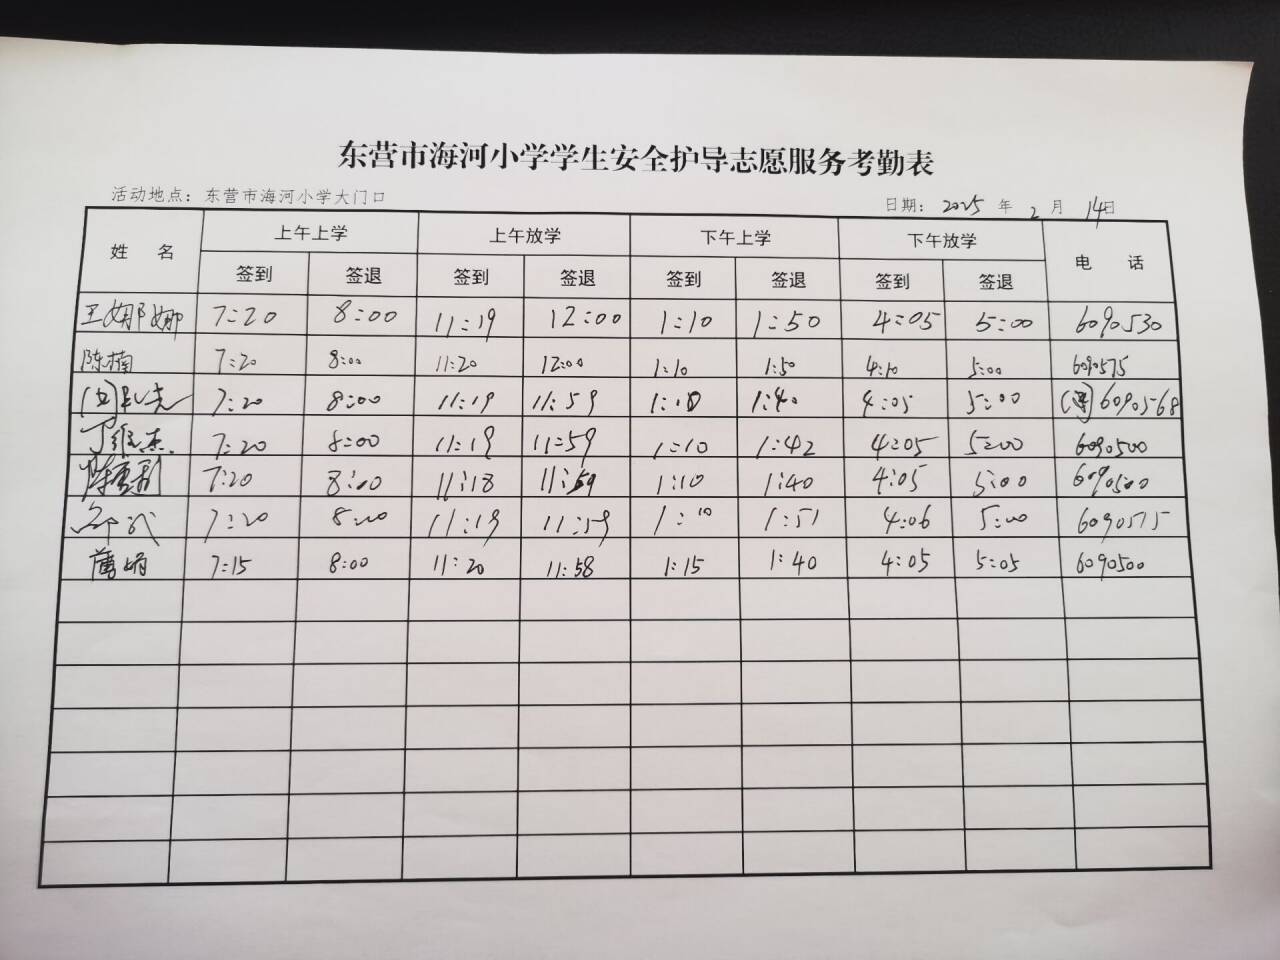 东营市海河小学学生安全护导志愿服务考勤表
活动地点：东营市海河小学大门口 日期：2025年2月14日
姓 名 上午上学 上午放学 下午上学 下午放学 电 话
签到 签退 签到 签退 签到 签退 签到 签退
王娜娜 7:20 8:00 11:19 12:00 1:10 1:50 4:05 5:00 6090530
陈楠 7:20 8:00 11:20 12:00 1:10 1:50 4:10 5:00 6090575
7:20 8:00 11:19 11:59 1:10 1:40 4:05 5:00 6090568
丁维杰 7:20 8:00 11:19 11:59 1:10 1:42 4:05 5:00 6090500
7:20 8:00 11:18 11:59 1:10 1:40 4:05 5:00 6090500
7:20 8:00 11:19 11:59 1:10 1:51 4:06 5:00 6090575
7:15 8:00 11:20 11:58 1:15 1:40 4:05 5:05 6090500